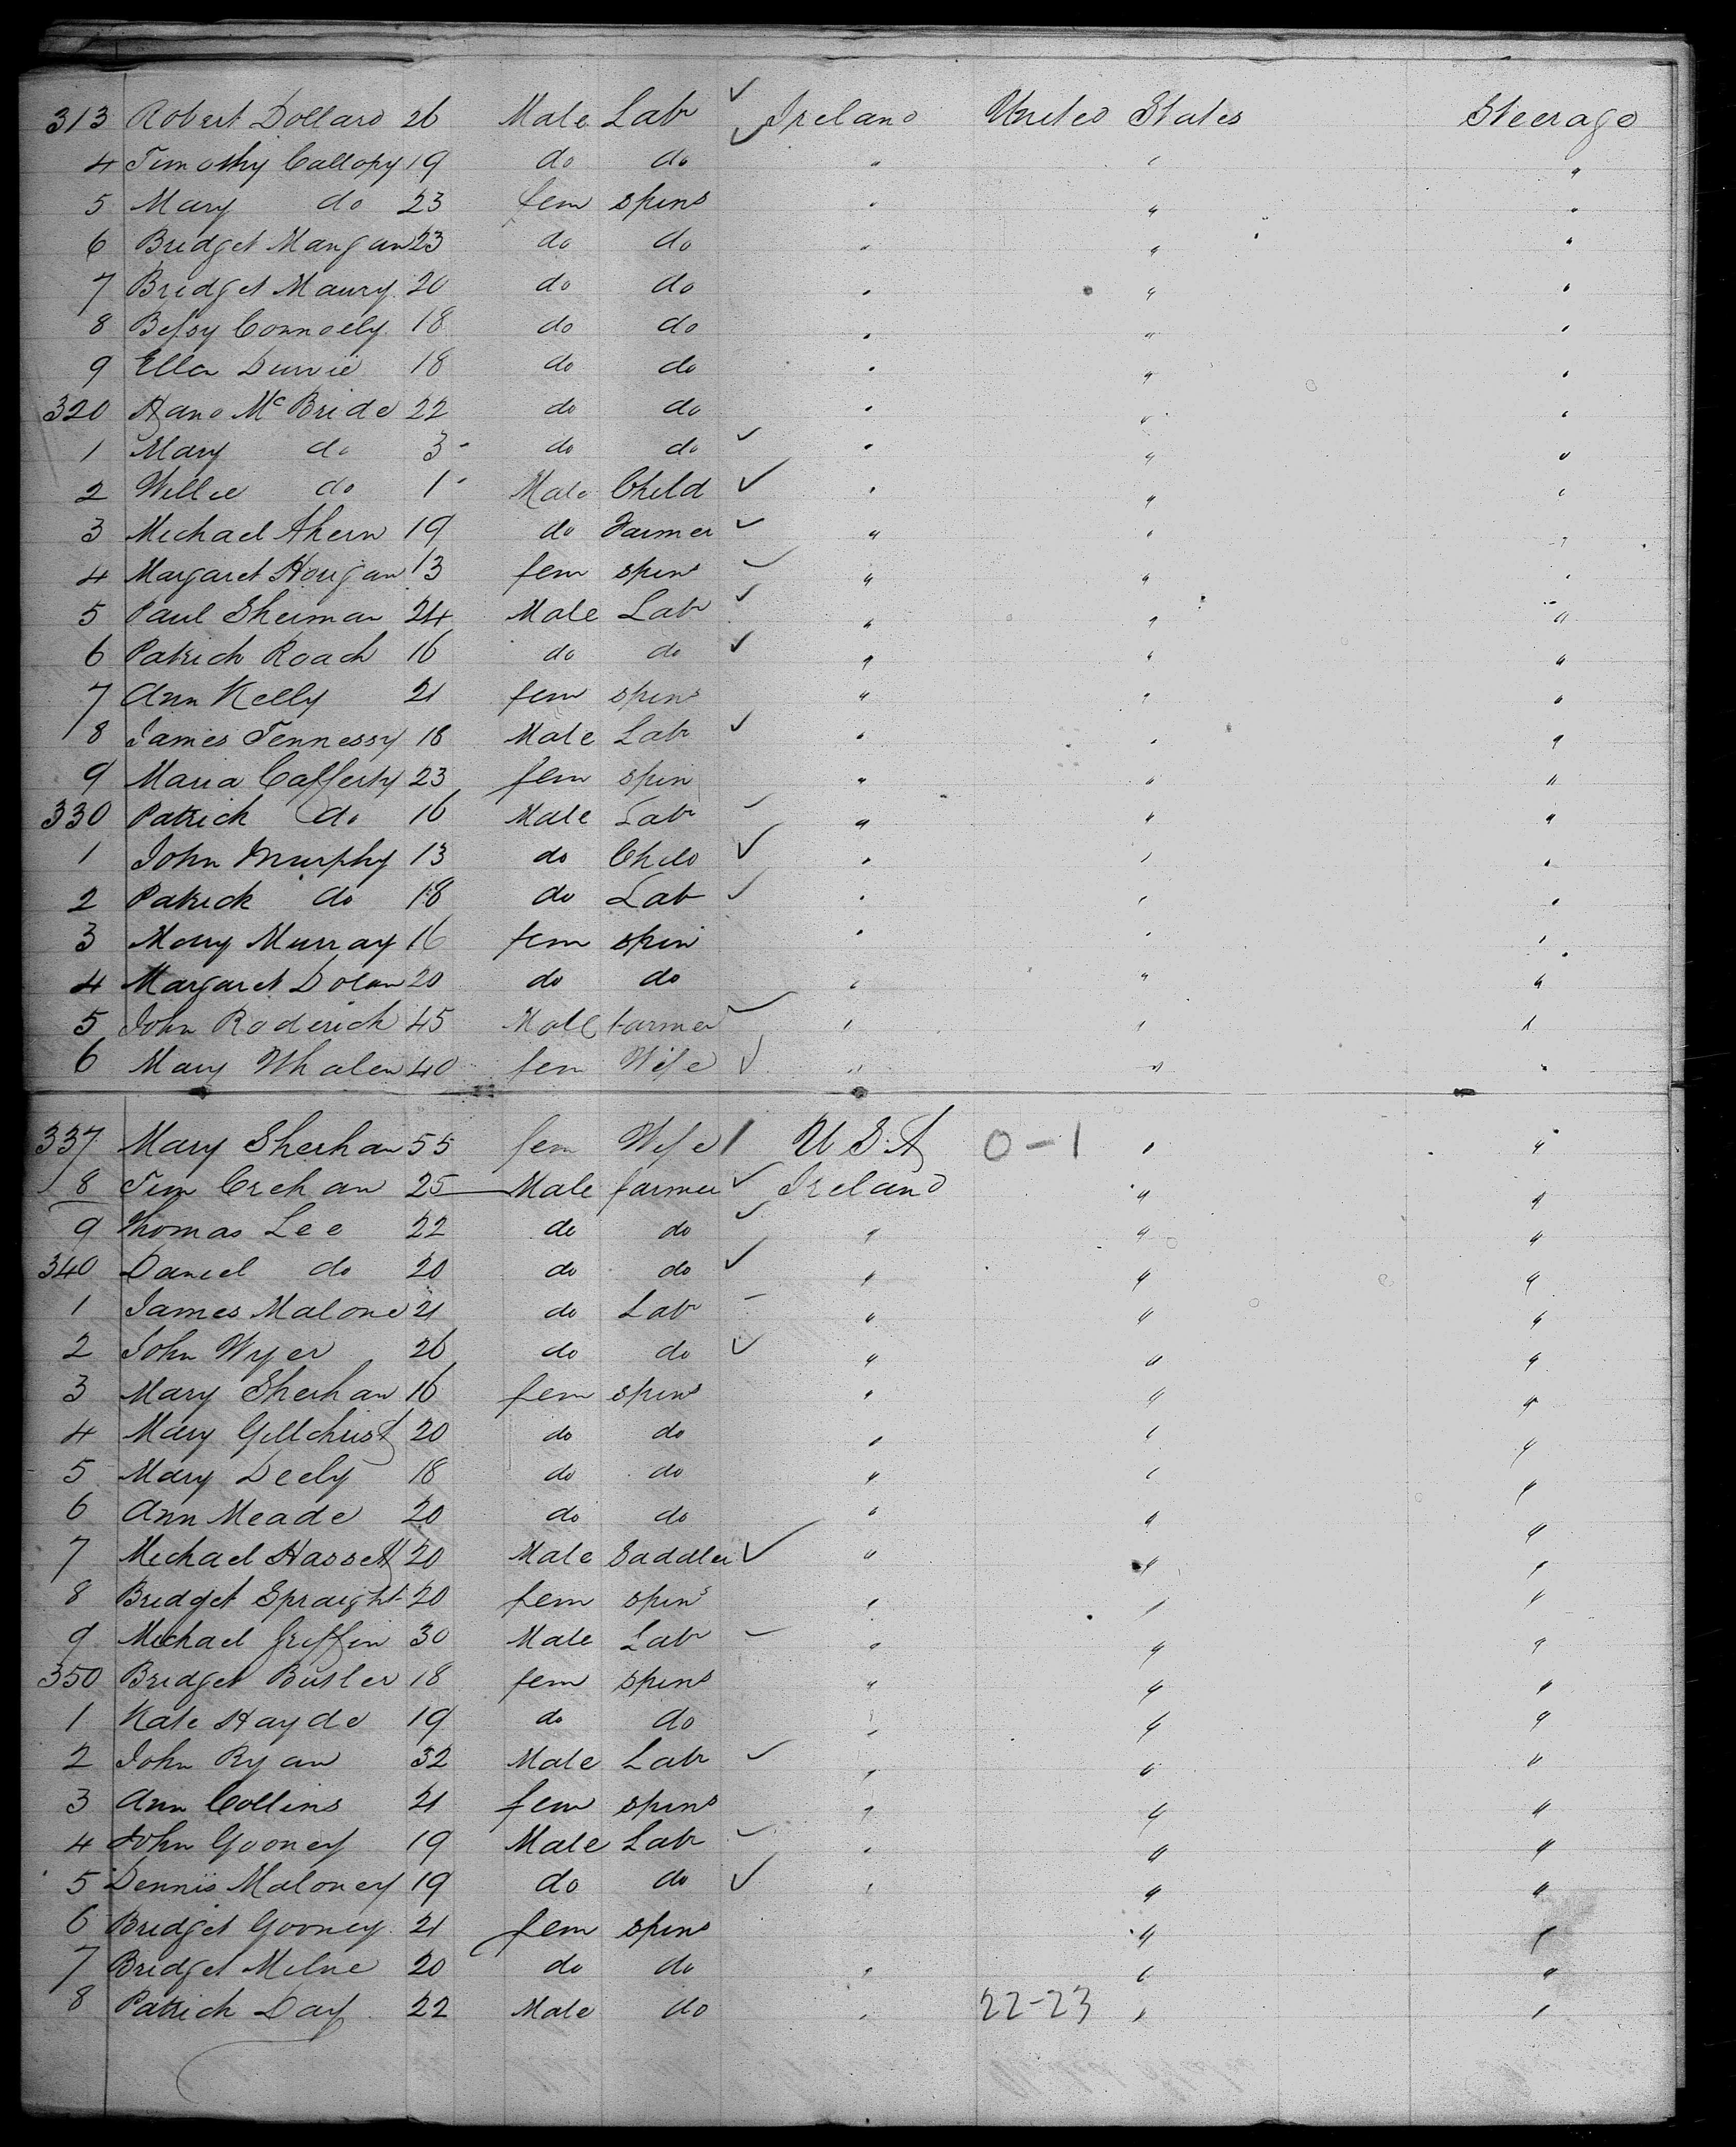 313 Robert Dollard 26 Male Lab ✓ Ireland United States Steerage
4 Timothy Callopy 19 do do ✓ " " "
5 Mary do 23 fem spins " " "
6 Bridget Mangan 23 do do " " "
7 Bridget Maury 20 do do " " "
8 Betsy Connoely 18 do do " " "
9 Ella 18 do do " " "
320 Hano McBride 22 do do " " "
1 Mary do 3 - do do ✓ " " "
2 Willie do 1 - Male Child ✓ " " "
3 Michael Ahern 19 do Farmer ✓ " " "
4 Margaret Horigan 13 fem spins ✓ " " "
5 Paul Sheiman 24 Male Lab ✓ " " "
6 Patrick Roach 16 do do ✓ " " "
7 Ann Kelly 21 fem spins " " "
8 James Tennessy 18 Male Lab ✓ " " "
9 Maria Cafferty 23 fem spin " " "
330 Patrick do 16 Male Lab ✓ " " "
1 John Murphy 13 do Child ✓ " " "
2 Patrick do 18 do Lab ✓ " " "
3 Mary Murray 16 fem spin " " "
4 Margaret Dolan 20 do do " " "
5 John Roderick 45 Male farmer ✓ " " "
6 Mary Whalen 40 fem Wife ✓ " " "
337 Mary Sheehan 55 fem Wife / U S. A 0-1 " "
8 Tim Crehan 25 Male farmer ✓ Ireland " "
9 Thomas Lee 22 do do ✓ " " "
340 Daniel do 20 do do ✓ " " "
1 James Malone 21 do Lab - " " "
2 John Wyer 26 do do ✓ " " "
3 Mary Sheehan 16 fem spins " " "
4 Mary Gillchrist 20 do do " " "
5 Mary Deely 18 do do " " "
6 Ann Meade 20 do do " " "
7 Michael Hassett 20 Male Saddler ✓ " " "
8 Bridget Spraight 20 fem spins " " "
9 Michael Griffin 30 Male Lab ✓ " " "
350 Bridget Butler 18 fem spins " " "
1 Kate Hayde 19 do do " " "
2 John Ryan 32 Male Lab ✓ " " "
3 Ann Collins 21 fem spins " " "
4 John Gooney 19 Male Lab ✓ " " "
5 Dennis Maloney 19 do do ✓ " " "
6 Bridget Gooney 21 fem spins " "
7 Bridget Milne 20 do do " " "
8 Patrick Day 22 Male do " 22-23 " "